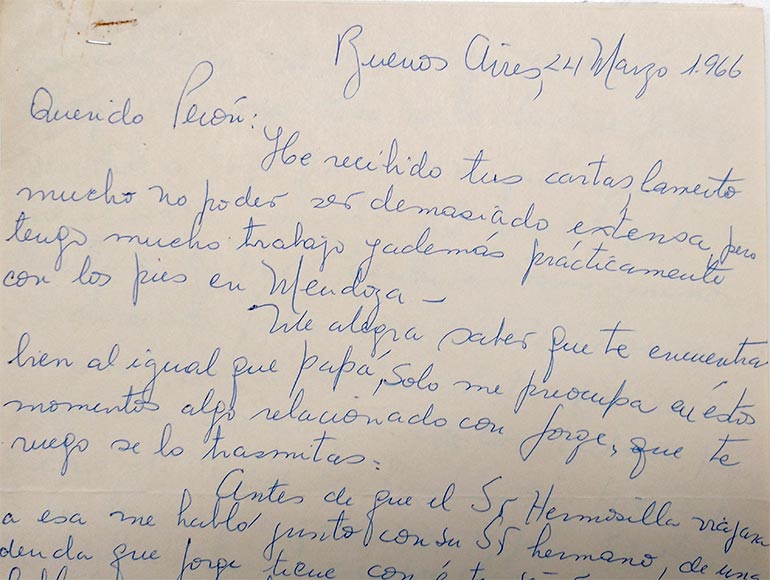 Buenos Aires, 24 Marzo 1.966
Querido Perón:
He recibido tus cartas, lamento
mucho no poder ser demasiado extensa, pero
tengo mucho trabajo y además prácticamente
con los pies en Mendoza —
Me alegra saber que te encuentra
bien al igual que papá, Solo me preocupa en éstos
momentos algo relacionado con Jorge, que te
ruego se lo trasmitas:
Antes de que el Sr Hermosilla viajara
a esa me habló junto con su Sr hermano, de una
deuda que Jorge tiene con